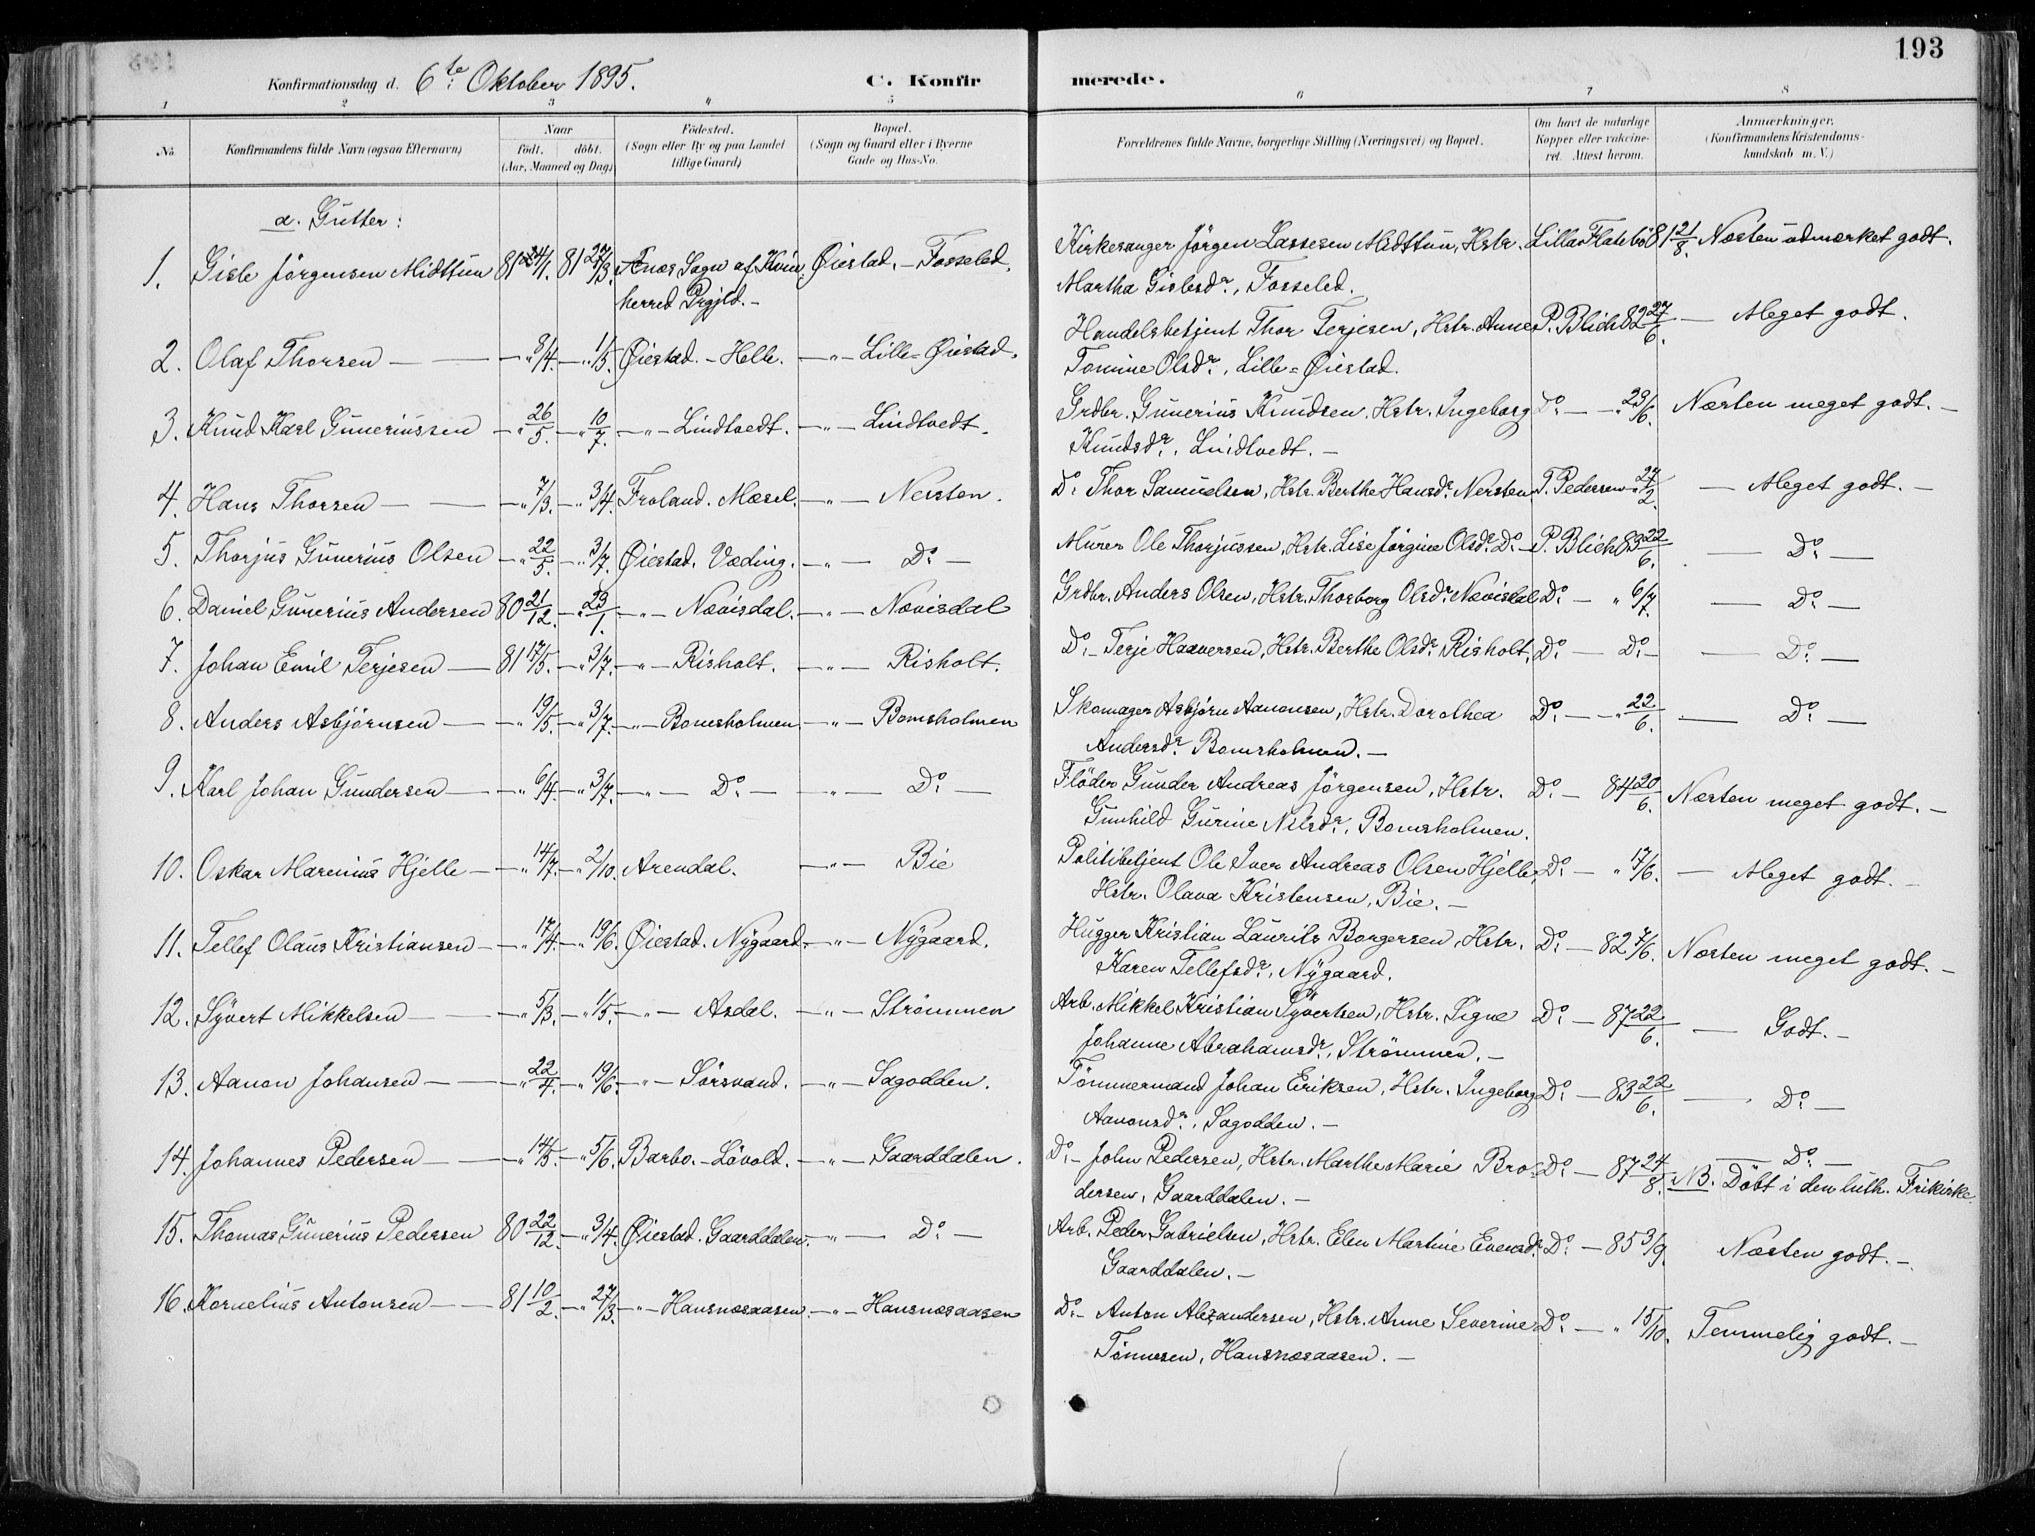 193
Konfirmationsdag d. 6te Oktober 1895. C. Konfirmerede.
1 2 3 " 5 6 7 8
No. Konfirmandens fulde Navn (ogsaa Efternavn) Naar født. døbt. (Aar, Maaned og Dag) Fødested. (Sogn eller By og paa Landet tillige Gaard) Bopæl. (Sogn og Gaard eller i Byerne Gade og Hus-No. Forældrenes fulde Navne, borgerlige Stilling (Næringsvei) og Bopæl. Om havt de naturlige Kopper eller vakcineret. Attest herom. Anmærkninger. (Konfirmandens Kristendomskundskab m. V.)
a. Gutter:
1. Gisle Jörgensen Midttun 81 24/1. 81 27/3. Ænes Sogn af Kvinherred Prgjld. - Øiestad. - Fosseled. Kirkesanger Jörgen Lassesen Midttun, Hstr. Martha Gislesdr., Fosseled. Lilla Flatebö 81 21/8. Næsten udmærket godt.
2. Olaf Thorsen — " 8/4. " 1/5. Øiestad. - Helle. — " — Lille-Øiestad. Handelsbetjent Thor Terjesen, Hstr. Anne Tomine Olsdr., Lille-Øiestad. P. Blich 82 27/6. — Meget godt.
3. Knud Karl Guneriussen — " 26/5. " 10/7. — " — Lindtvedt. — " — Lindtvedt. Grdbr. Gunerius Knudsen, Hstr. Ingeborg Knudsdr., Lindtvedt. — Do — " 23/6. Næsten meget godt. —
4. Hans Thorsen — " 7/3. " 3/4. Froland. Mæsel. — " — Nersten. Do Thor Samuelsen, Hstr. Berthe Hansdr. Nersten T. Pedersen " 24/2. — Meget godt. —
5. Thorjus Gunerius Olsen — " 22/5. " 3/7. Øiestad. Væding. — " — Do — Murer Ole Thorjussen, Hstr. Lise Jörgine Olsdr. Do — P. Blich 83 22/6. — Do —
6. Daniel Gunerius Andersen 80 21/12. " 23/1. — " — Nævisdal. — " — Nævisdal Grdbr. Anders Olsen, Hstr. Thorborg Olsdr. Nævisdal Do — " 6/7. — Do —
7. Johan Emil Terjesen — 81 17/5. " 3/7. — " — Risholt. — " — Risholt. Do - Terje Haaversen, Hstr. Berthe Olsdr. Risholt. Do — Do — — Do —
8. Anders Asbjörnsen — " 19/5. " 3/7. — " — Bomsholmen — " — Bomsholmen Skomager Asbjörn Aanonsen, Hstr. Dorothea Andersdr. Bomsholmen. — Do — " 22/6. — Do —
9. Karl Johan Gundersen — " 6/4. " 3/7. — " — Do — — " — Do — Flöder Gunder Andreas Jörgensen, Hstr. Gunhild Gurine Nilsdr., Bomsholmen. Do — 84 20/6. Næsten meget godt. —
10. Oskar Marenius Hjelle — " 14/7. " 2/10. Arendal. — " — Bie Politibetjent Ole Iver Andreas Olsen Hjelle, Hstr. Olava Kristensen, Bie. — Do — " 17/6. — Meget godt. —
11. Tellef Olaus Kristiansen — " 17/4. " 19/6. Øiestad. Nÿgaard. — " — Nÿgaard. Hugger Kristian Laurits Borgersen, Hstr. Karen Tellefsdr., Nÿgaard. Do — 82 7/6. Næsten meget godt. —
12. Syvert Mikkelsen — " 5/3. " 1/5. — " — Asdal. — " — Strömmen Arb. Mikkel Kristian Syvertsen, Hstr. Signe Johanne Abrahamsdr., Strömmen. — Do — 87 22/6. — Godt. —
13. Aanon Johansen — " 22/4. " 19/6. — " — Sörsvand. — " — Sagodden. Tömmermand Johan Eriksen, Hstr. Ingeborg Aanonsdr., Sagodden. — Do — 83 22/6. — Do —
14. Johannes Pedersen — " 14/5. " 5/6. Barbo. - Lövold. — " — Gaarddalen. Do - John Pedersen, Hstr. Marthe Marie Brodersen, Gaarddalen. — Do — 87 24/8. — Do — NB. Döbt i den luth. Frikirke
15. Thomas Gunerius Pedersen 80 22/12. " 3/4. Øiestad. Gaarddalen. — " — Do — Arb. Peder Gabrielsen, Hstr. Elen Martine Evensdr. Gaarddalen. — Do — 85 3/9. Næsten godt. —
16. Kornelius Antonsen — 81 10/2. " 27/3. — " — Hansnæsaasen. — " — Hansnæsaasen Do - Anton Alexandersen, Hstr. Anne Severine Tönnesen, Hansnæsaasen. — Do — " 15/10. Temmelig godt. —